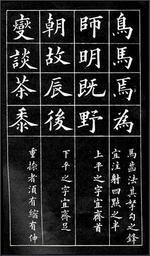 鳥馬焉為
師明既野
朝故辰後
燮談茶黍
馬齒法其努勾之鋒
宜注射四點之半
上平之字宜齊首
下平之字宜齊足
重捺者須有縮有伸